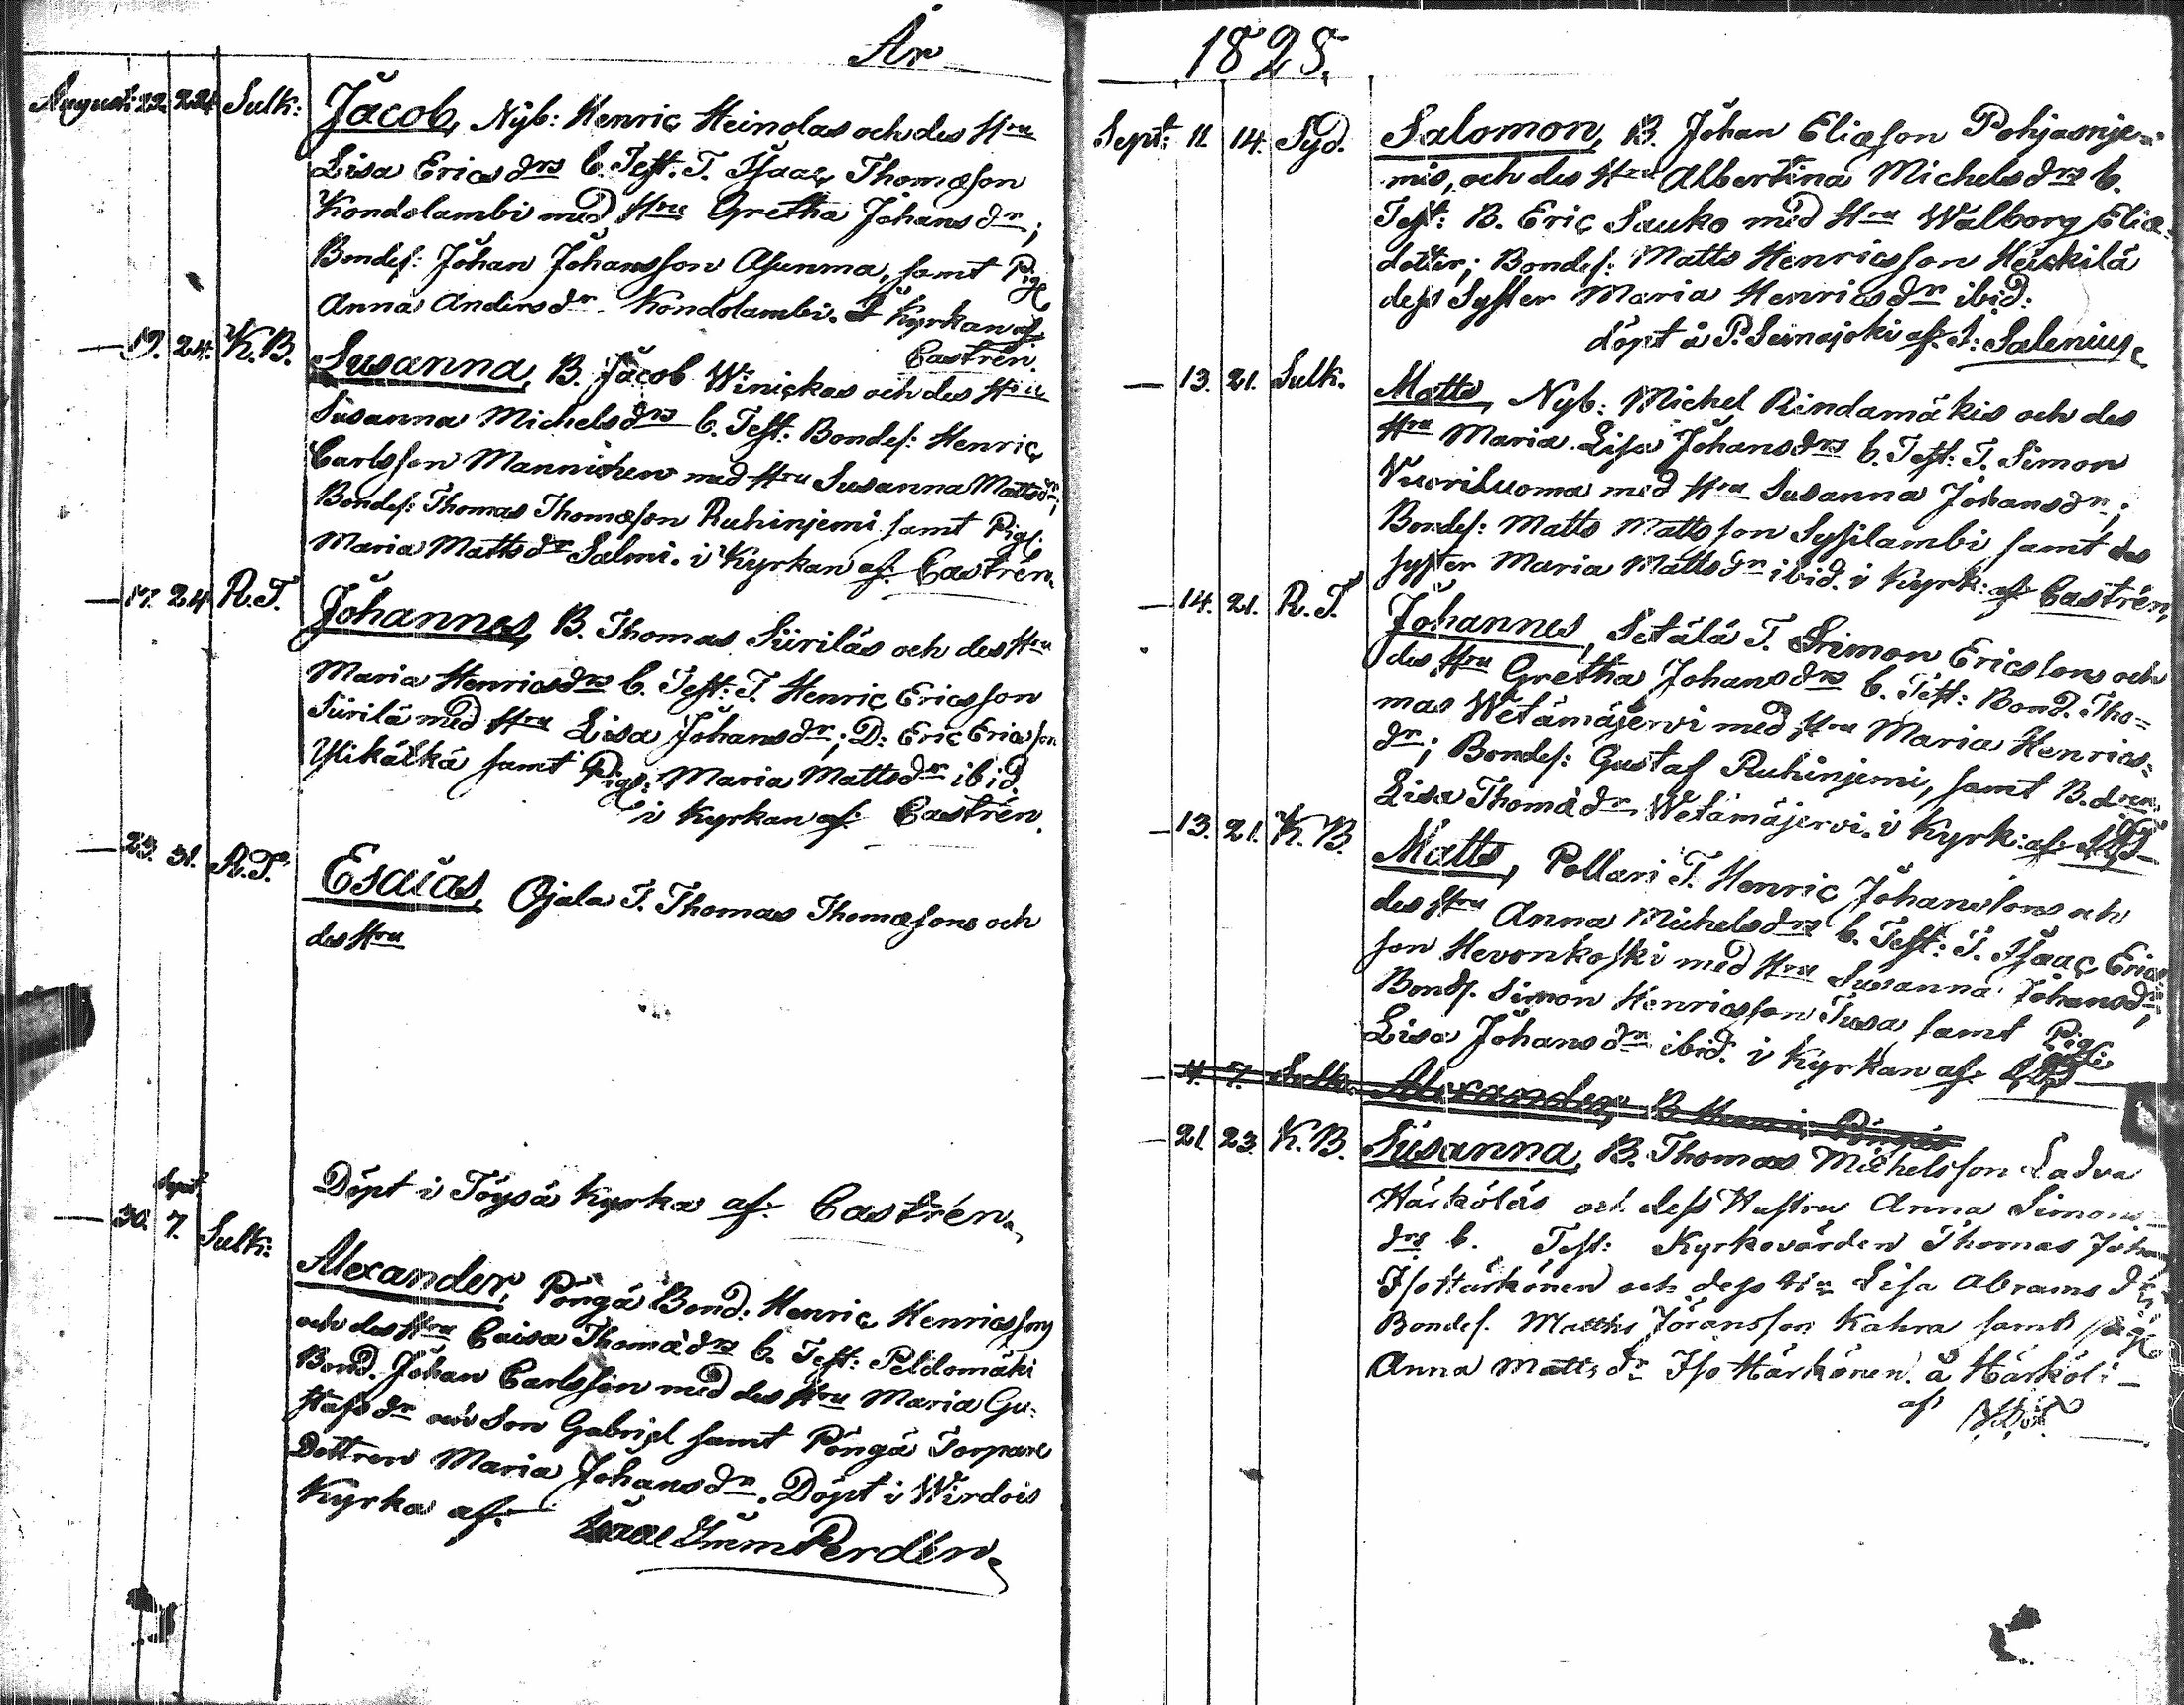 År
August: 22. 24. Sulk: Jacob, Nyb: Henric Heinolas och des Hru
Lisa Ericsdrs b. Test. T. Isaac Thomæson
Kondolambi med Hru Gretha Johansdr;
Bondes: Johan Johansson Asunma, samt Pig.
Anna Andersdr Kondolambi. I Kyrkan af
Castrén.
— 19. 24. K.B. Susanna, B. Jacob Winickas och des Hru
Susanna Michelsdrs b. Test: Bondes: Henric
Carlsson Mannishen med Hru Susanna Mattsdr;
Bondes: Thomas Thomæson Ruhinjemi samt Pig:
Maria Mattsdr Salmi. i Kyrkan af Castrén.
— 17. 24 R.T. Johannes, B. Thomas Siiriläs och des Hru
Maria Henricsdrs b. Test: T. Henric Ericsson
Siirilä med Hru Lisa Johansdr; D: Eric Ericsson
Ylikälkä samt Pig: Maria Mattsdr ibid.
i Kyrkan af Castrén.
— 23. 31. R.T. Esaias, Ojala T. Thomas Thomæsons och
des Hru
Döpt i Töysä Kyrka af. Castrén.
Sept.
— 30. 7. Sulk: Alexander, Pöngä Bond: Henric Henricssons
och des Hru Caisa Thomædrs b. Test: Peldomäki
Bond. Johan Carlsson med des Hru Maria Gu-
stafsdr och Son Gabriel samt Pöngä Torpare
Dottren Maria Johansdr. Döpt i Wirdois
Kyrka af. Perdén.
1825.
Sept: 11. 14. Syd. Salomon, B. Johan Eliæson Pohjasnje-
mis, och des Hru Albertina Michelsdrs b.
Test: B. Eric Sauko med Hru Walborg Eliæ-
dotter; Bondes: Matts Henricsson Heickilä
dess Syster Maria Henricsdr ibid:
döpt å P. Seinäjoki af. I: Salenius.
— 13. 21. Sulk. Matts, Nyb: Michel Rindamäkis och des
Hru Maria Lisa Johansdrs b. Test: T. Simon
Vuoriluoma med Hru Susanna Johansdr;
Bondes: Matts Mattsson Sysilambi samt des
syster Maria Mattsdr ibid. i Kyrk: af Castrén,
— 14. 21. R.T. Johannes, Setälä T. Simon Ericssons och
des Hru Gretha Johansdrs b. Test: Bond. Tho-
mas Wetämäjervi med Hru Maria Henrics-
dr; Bondes: Gustaf Ruhinjemi, samt B.dren
Lisa Thomædr Wetämäjervi. i Kyrk: af
— 13. 21. K.B. Matts, Pollari T. Henric Johanssons och
des Hru Anna Michelsdrs b. Test: T. Isaac Erics-
son Hevonkoski med Hru Susanna Johansdr;
Bonds. Simon Henricsson Tusa samt Pig:
Lisa Johansdr ibid. i Kyrkan af
— 4. 7. Sulk. Alexander, B Henric Pöngäs
— 21. 23. K.B. Susanna, B. Thomas Michelsson Ladva
Härköläs och dess Hustru Anna Simons
drs b. Test: Kyrkovärden Thomas Johan
Iso Härkönen och dess Hru Lisa Abramsdr
Bondes. Matths Jöransson Kahra samt pig
Anna Mattsdr Iso Härkönen. å Härkölä
af